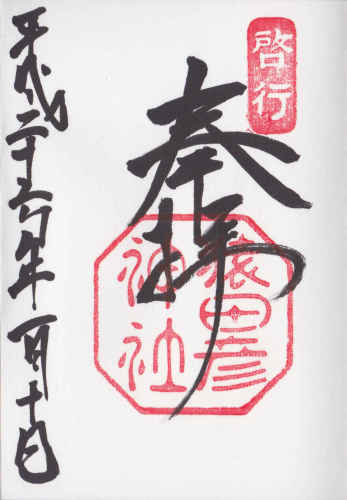 啓行
奉拝
猿田彦
神社
平成二十六年一月十日